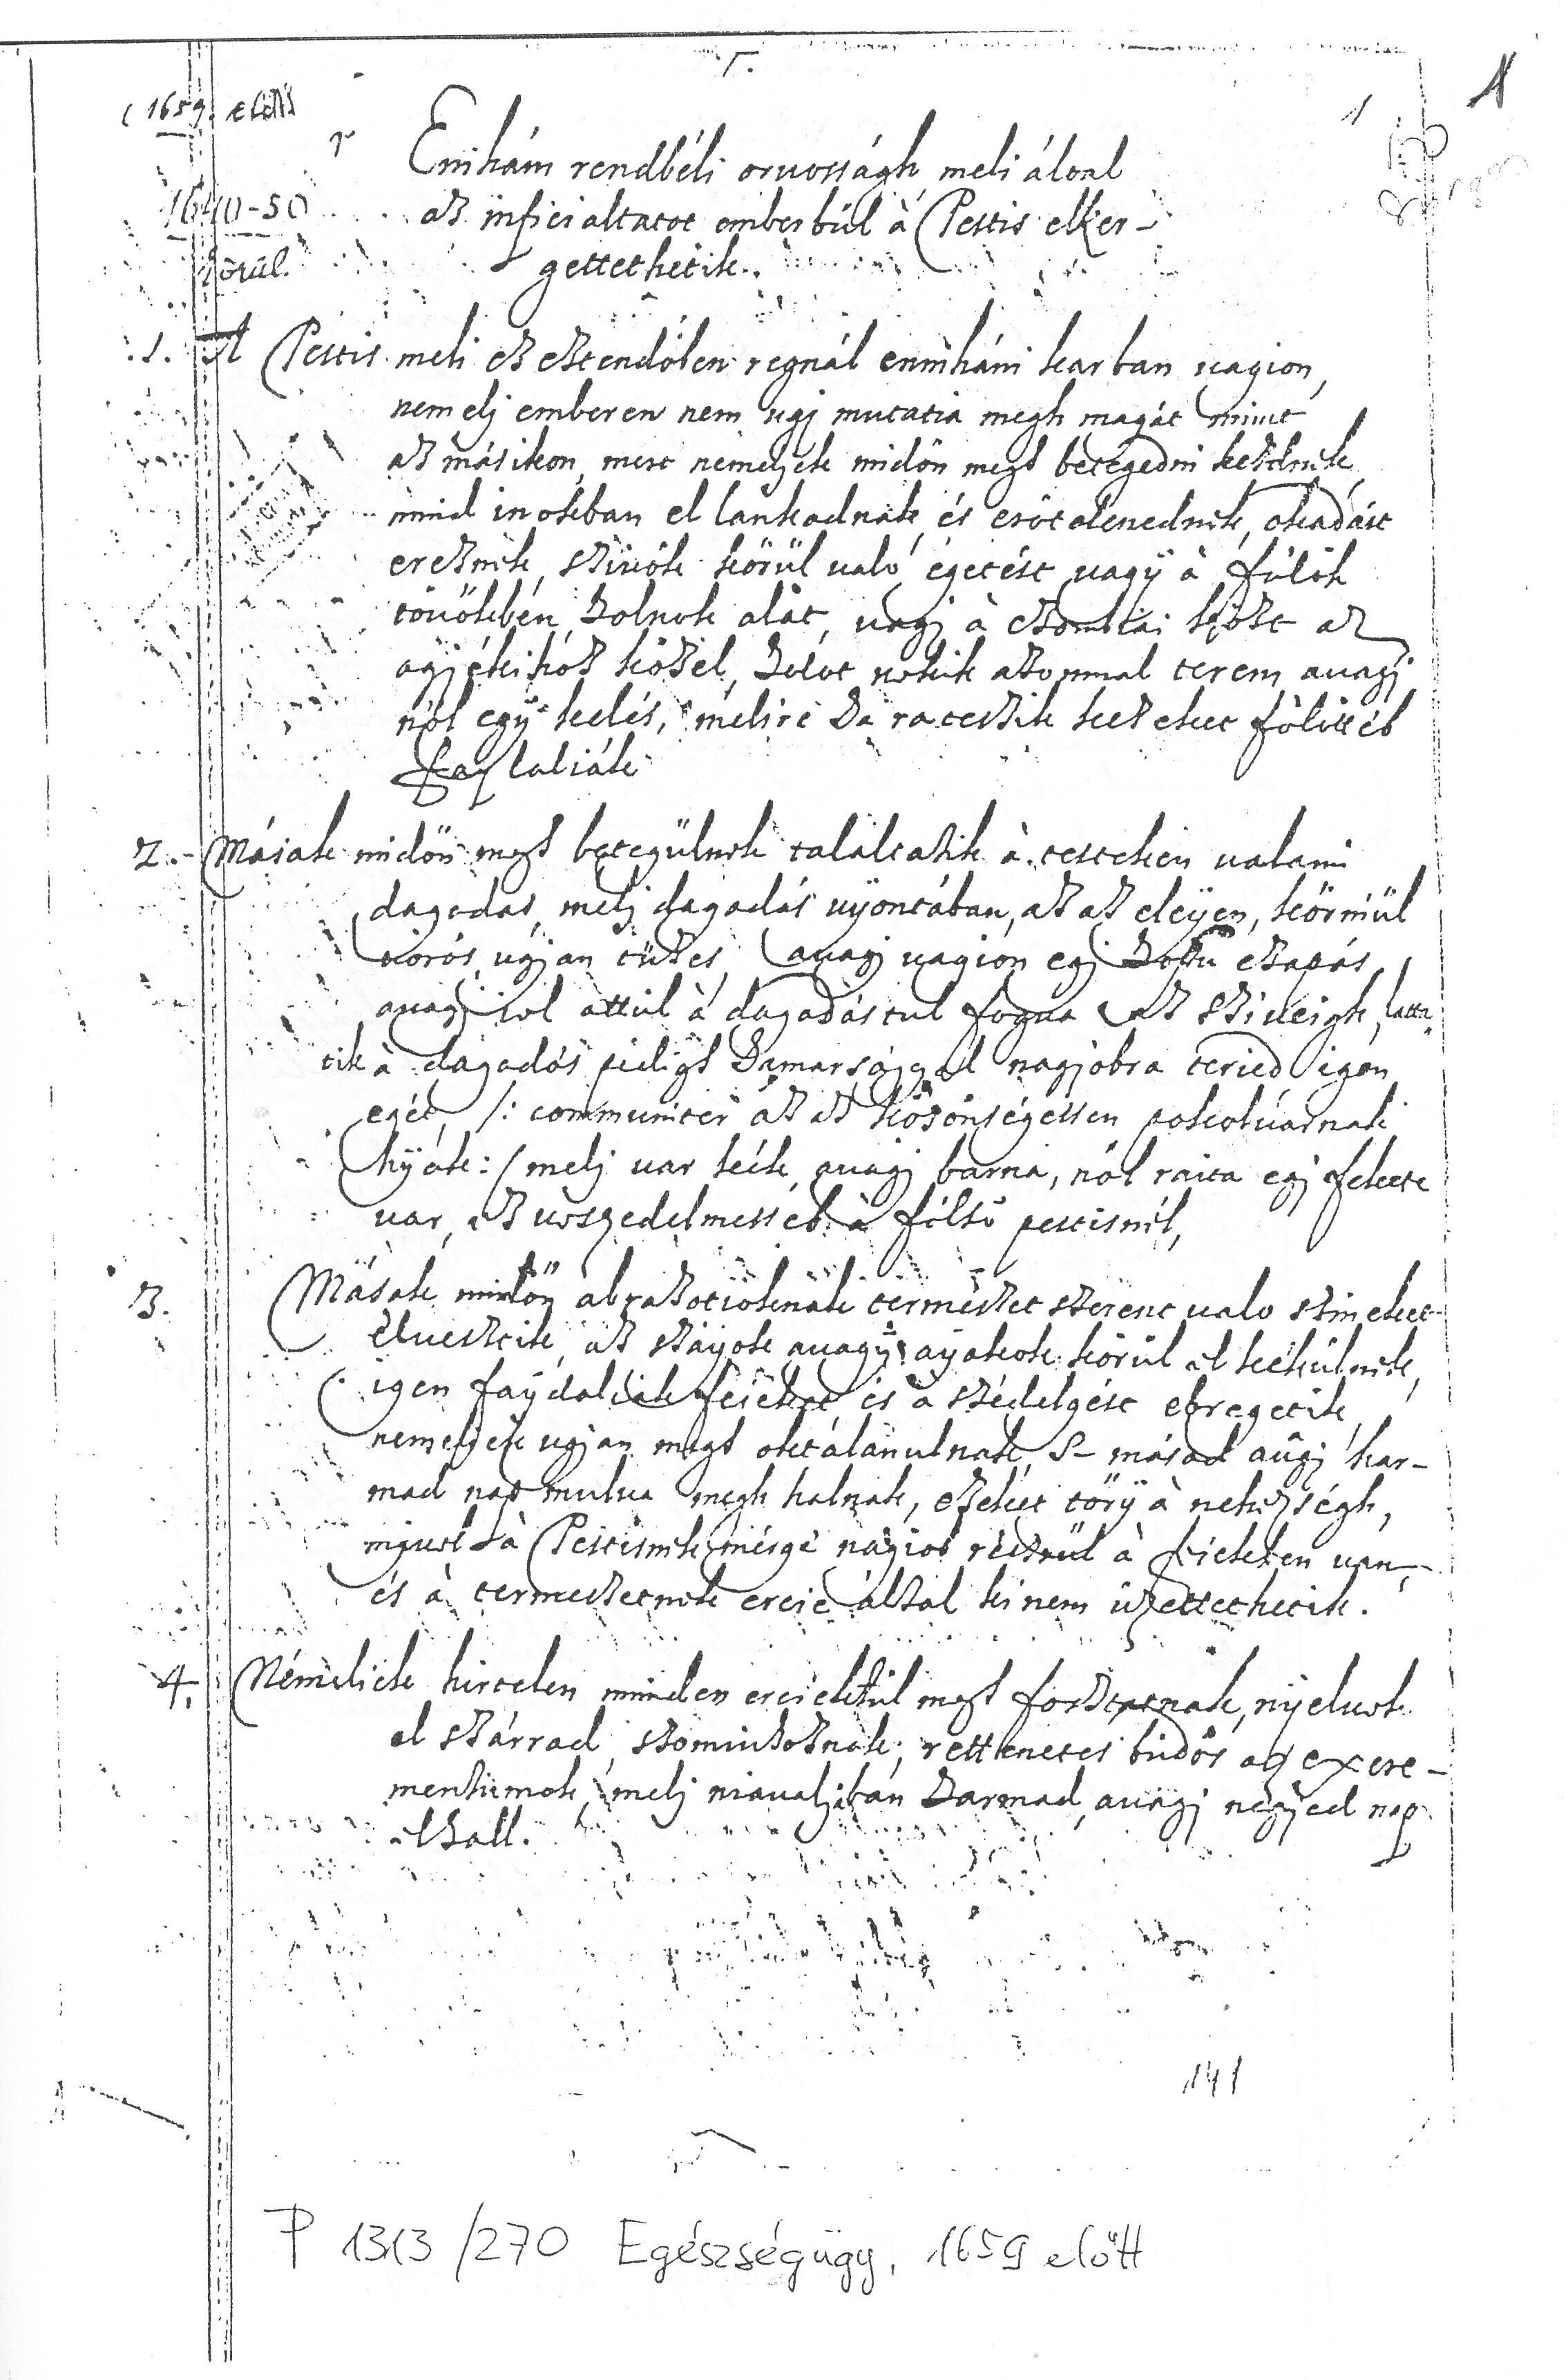 1
(1659. előtt
1640-50
körül.
Enihám rendbéli oruosságh meli által
az inficialtatot emberbül à Pestis elker-
gettethetik.
1. A Pestis meli ez esztendőben regnál enniháni karban vagion,
nemelj emberen nem ugj mutatia megh magát mint
az másikon, mert nemelyek midőn megh betegedni kezdnek,
mind inokban el lankadnak, és erötelenednek, okadást
ereznek, sziuök körül való égetést vagÿ à fülök
tövökben, holnok alat, vagj à czombiai közt az
agjékihoz közel, holot nekik azonnal terem auagj
nől egÿ kelés, melire ha rateszik kezeket fölötteb
faylaliák
2. Mások midőn megh betegülnek találtatik à testeken valami
dagadas, melj dagadás uÿontában, az az eleÿen, körniül
vörös ugjan tüzes, auagj vagion egj hoszu czapás,
auagj hol attúl à dagadástul fogua az sziveigh, latta-
tik à dagadás pedigh hamarsággal nagjobra teried igen
egét, /: communiter az az közönségessen pokoluarnak
hÿák :/ melj uar kék, auagj barna, nől raita egj fekete
uar, ez ueszedelmesseb à fölső pestisnél,
3. Mások midőn abrazatioknak termeszet szerent valo szineket
eluesztik, az szájok auagÿ ayakok körül el kekülnek,
igen faÿdalÿak fejeket, és à szédelgést ebregetik,
nemelyek ugjan megh oktalanulnak, s- másod augj har-
mad nap mulua megh halnak, ezeket törÿ à nehezségh,
miuel à Pestisnek mérge nagiob részrül à fejekben van,
és à termeszetnek ereie által ki nem üzettethetik.
4. Némeliek hirtelen minden erejektül megh fosztatnak, nÿeluek
el szárrad, szomiuhoznak, rettenetes büdös az excre-
mentumok, melj niaualjában harmad, auagj negjed nap
elhall.
141
P 1313/270 Egészségügy, 1659 előtt